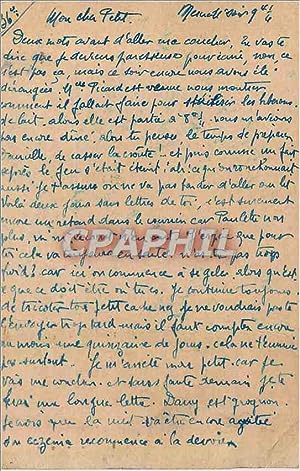 Mercredi soir 9h
Mon cher Petit.
Deux mots avant d'aller me coucher, tu vas te
dire que je deviens paresseuse pour écrire, non, ce
n'est pas ça, mais ce soir encore nous avons été
dérangées, Mme Picard est venue nous montrer
comment il fallait faire pour stériliser les biberons
de lait, alors elle est partie à 8h, nous n'avions
pas encore dîné, alors tu penses le temps de préparer
Danielle, de casser la croûte! et puis comme un fait
exprès le feu s'était éteint, ah! ce qu'on ronchonnait
aussi je t'assure qu'on ne va pas tarder d'aller au lit
Voilà deux jours sans lettres de toi, c'est sûrement
encore un retard dans le courrier car Paulette non
plus, n'a rien
CPAPHIL
que pour
toi cela va
pas trop
froid? car ici on commence à se geler, alors qu'est
ce que ce doit être où tu es. Je continue toujours
de tricoter ton petit cache-nez, je ne voudrais pas te
l'envoyer trop tard mais il faut compter encore
au moins une quinzaine de jours, cela ne t'ennuie
pas surtout. Je m'arrête mon petit car je
vais me coucher et sans faute demain je te
ferai une longue lettre. Dany est grognon
je crois que la nuit va être encore agitée
son eczéma recommence à la dévorer